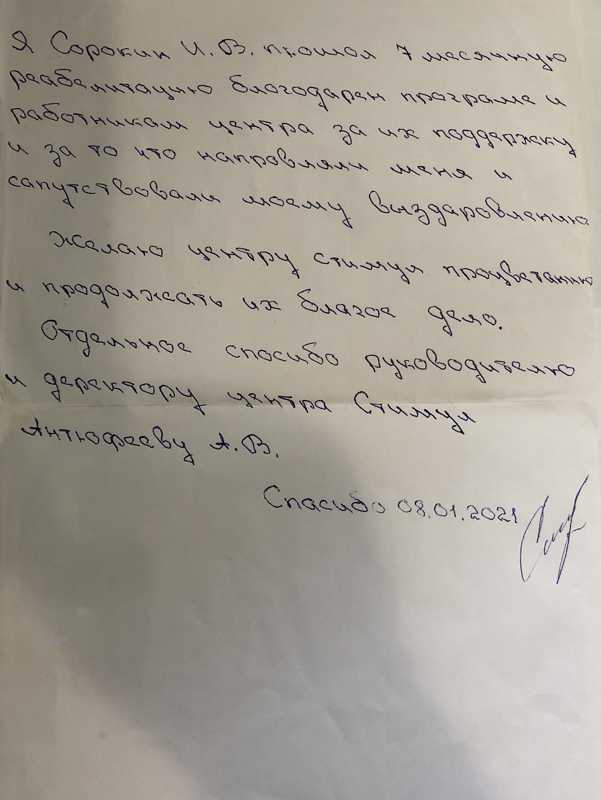 Я Сорокин И. В. прошол 7 месячную
реабелитацию благодарен програме и
работникам центра за их поддержку
и за то что напровляли меня и
сапутствовали моему выздаровлению
Желаю центру стимул процветанию
и продолжать их благое дело.
Отдельное спосибо руководителю
и деректору центра Стимул
Антюфееву А. В.
Спасибо 08.01.2021